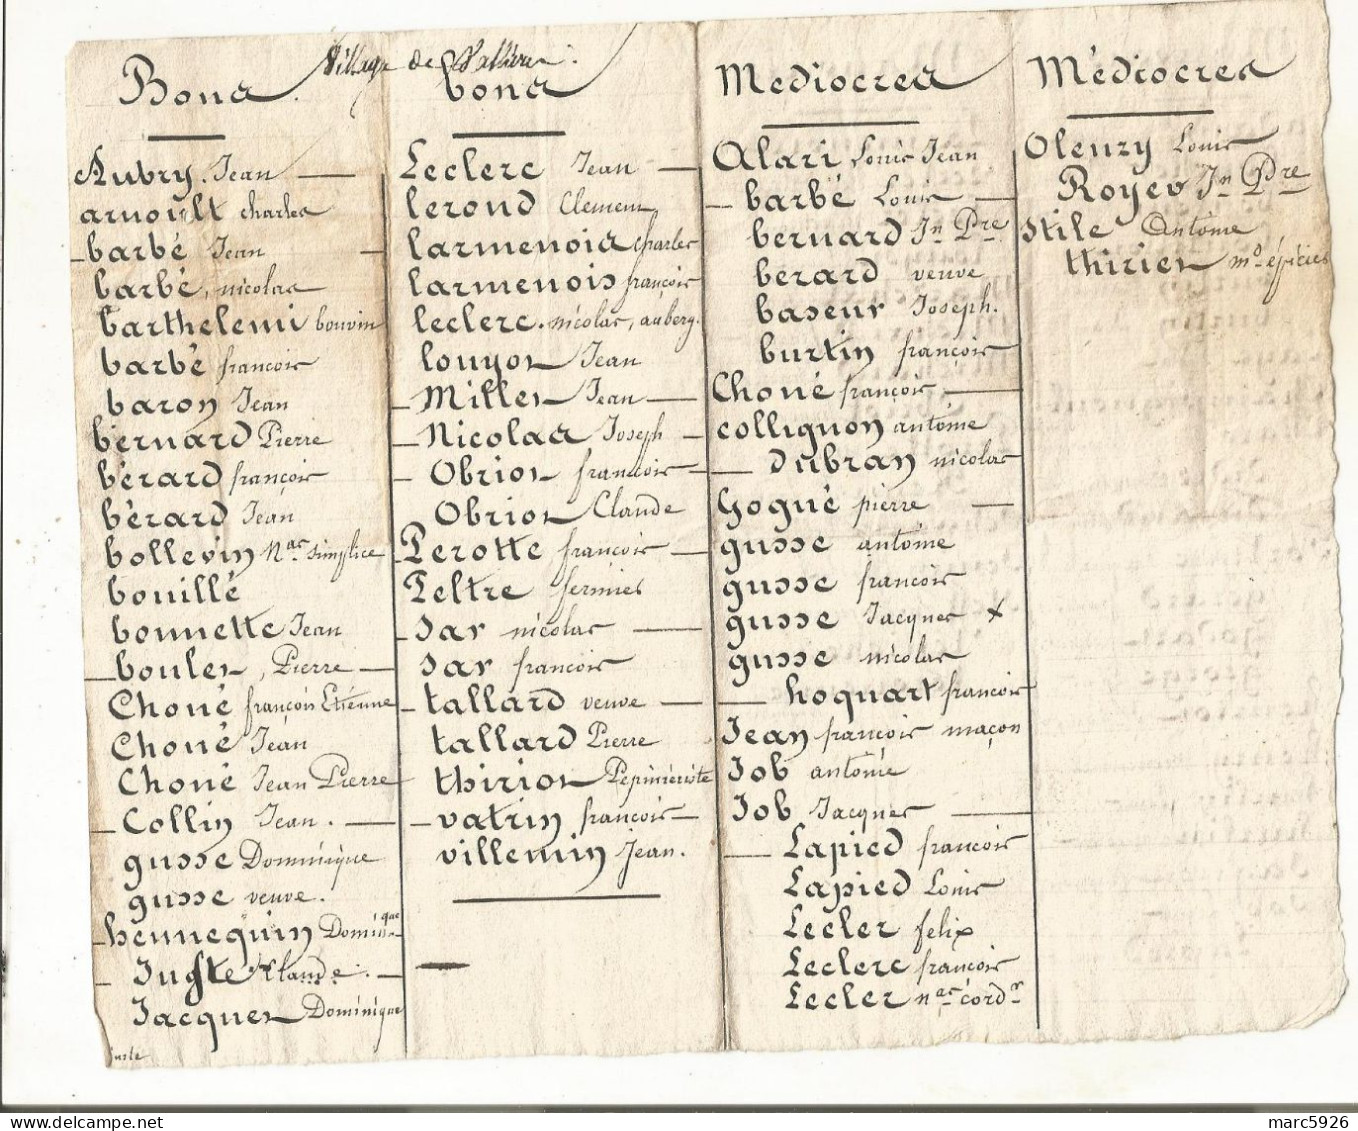 Village de Vallière.
Bons.
Aubry. Jean
arnoult charles
barbé Jean
barbé, nicolas
barthelemi bouvin
barbé françois
baron Jean
bernard Pierre
bérard françois
bérard Jean
bollevin Nas simplice
bouillé
bonnette Jean
boulet, Pierre
Choné françois Etienne
Choné Jean
Choné Jean Pierre
Collin Jean.
gusse Dominique
gusse veuve.
hennequin Dominique
Juste Claude.
Jacquet Dominique
Juste
bons
Leclerc Jean
lerond Clement
larmenois charles
larmenois françois
leclerc. nicolas, auberg.
louyot Jean
Millet Jean
Nicolas Joseph
Obriot francois
Obriot Claude
Perotte francois
Peltre fermier
sar nicolas
sar francois
tallard veuve
tallard Pierre
thiriot Pepinieriste
vatrin francois
villemin Jean.
Mediocres
Alari Louis Jean
barbé Louis
bernard Jn Pre
berard veuve
baseur Joseph.
burtin francois
Choné françois
collignon antoine
dubray nicolas
Gogué pierre
gusse antoine
gusse francois
gusse Jacques x
gusse nicolas
hoquart francois
Jean francois maçon
Job antoine
Job Jacques
Lapied francois
Lapied Louis
Lecler felix
Leclerc francois
Lecler nas cordr
Médiocres
Olenry Louis
Royer Jn Pdre
stile Antoine
thiriet md épicier
marc5926